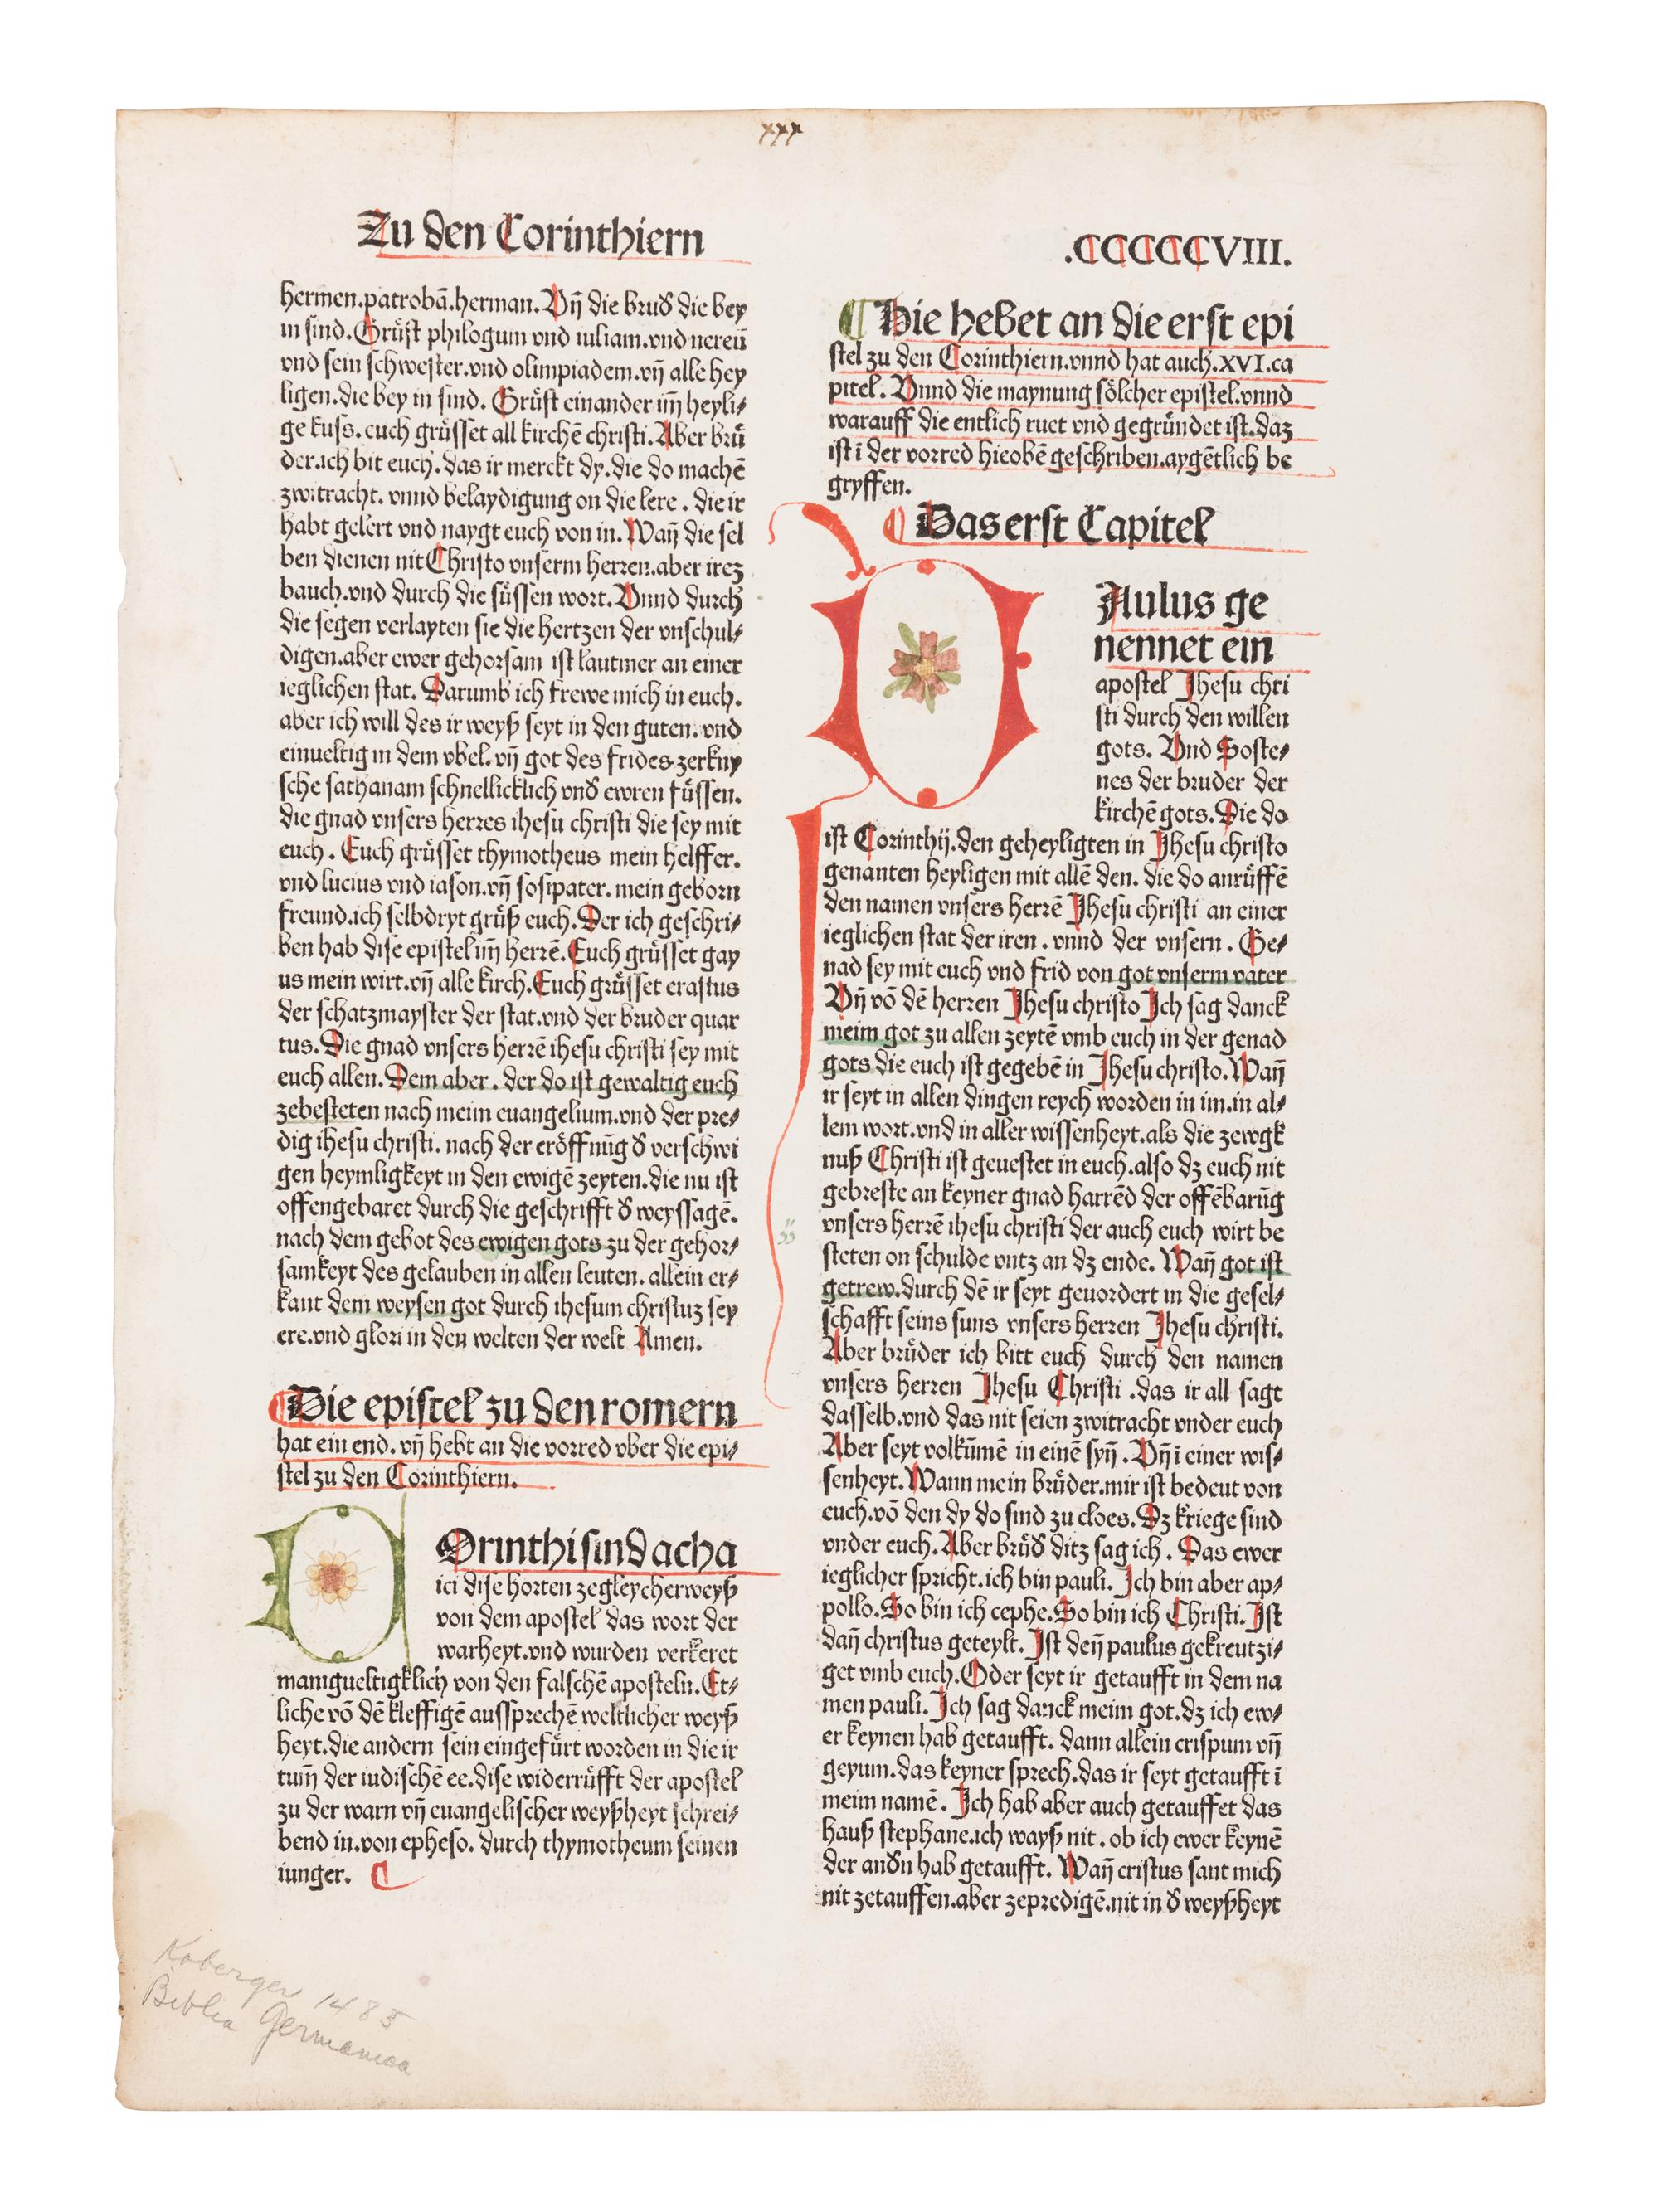 xxx
Zu den Corinthiern
.CCCCCVIII.
hermen.patrobā.herman. Vn̄ die brud̕ die bey
in sind. Grüſt philogum vnd iuliam.vnd nereū
vnd sein ſchweſter.vnd olimpiadem.vn̄ alle hey
ligen.die bey in ſind. Grüſt einander im̄ heyli⸗
ge kuſs. euch grüſſet all kirchē chriſti. Aber brü
der.ich bit euch. das ir merckt dy.die do machē
zwitracht. vnnd belaydigung on die lere. die ir
habt gelert vnd naygt euch von in. Wan̄ die ſel
ben dienen nit Chriſto vnſerm herren.aber irez
bauch.vnd durch die ſüſſen wort. Vnnd durch
die ſegen verlayten ſie die hertzen der vnſchul⸗
digen.aber ewer gehorſam iſt lautmer an einer
ieglichen ſtat. Darumb ich frewe mich in euch.
aber ich will des ir weyß ſeyt in den guten. vnd
einueltig in dem vbel. vn̄ got des frides zerkny
ſche ſathanam ſchnellicklich vnd̕ ewren füſſen.
die gnad vnſers herres iheſu chriſti die ſey mit
euch. Euch grüſſet thymotheus mein helffer.
vnd lucius vnd iaſon.vn̄ ſoſipater. mein geborn
freund.ich ſelbdryt grüß euch. Der ich geſchri⸗
ben hab diſe epiſtel im̄ herrē. Euch grüſſet gay
us mein wirt.vn̄ alle kirch. Euch grüſſet eraſtus
der ſchatzmayſter der ſtat.vnd der bruder quar
tus. Die gnad vnſers herrē iheſu chriſti ſey mit
euch allen. Dem aber. der do iſt gewaltig euch
zebeſteten nach meim euangelium.vnd der pre⸗
dig iheſu chriſti. nach der eröffnūg d̕ verſchwi
gen heymligkeyt in den ewigē zeyten.die nu iſt
offengebaret durch die geſchrifft d̕ weyſſagē.
nach dem gebot des ewigen gots zu der gehor⸗
ſamkeyt des gelauben in allen leuten. allein er⸗
kant dem weyſen got durch iheſum chriſtuz ſey
ere.vnd glori in den welten der welt Amen.
Die epiſtel zu den romern
hat ein end. vn̄ hebt an die vorred vber die epi⸗
ſtel zu den Corinthiern.
Orinthi ſind acha
ici diſe horten zegleycherweyß
von dem apoſtel das wort der
warheyt.vnd wurden verkeret
manigueltigklich von den falſchē apoſteln. Et⸗
liche vō dē kleffigē ausſprechē weltlicher weyß
heyt.die andern ſein eingefürt worden in die ir
tum̄ der iudiſchē ee.diſe widerrüfft der apoſtel
zu der warn vn̄ euangeliſcher weyßheyt ſchrei⸗
bend in.von epheſo. durch thymotheum ſeinen
iunger.
Hie hebet an die erſt epi
ſtel zu den Corinthiern.vnnd hat auch.XVI.ca
pitel. Vnnd die maynung ſölcher epiſtel.vnnd
warauff die entlich ruet vnd gegründet iſt.daz
iſt ī der vorred hieobē geſchriben.aygētlich be
gryffen.
Das erſt Capitel
PAulus ge
nennet ein
apoſtel Jheſu chri
ſti durch den willen
gots. Vnd Soſte⸗
nes der bruder der
kirchē gots. Die do
iſt Corinthij.den geheyligten in Jheſu chriſto
genanten heyligen mit allē den. die do anrüffē
den namen vnſers herrē Jheſu chriſti an einer
ieglichen ſtat der iren. vnnd der vnſern. Ge⸗
nad ſey mit euch vnd frid von got vnſerm vater
Vn̄ vō dē herren Jheſu chriſto Ich ſag danck
meim got zu allen zeytē vmb euch in der genad
gots die euch iſt gegebē in Jheſu chriſto. Wan̄
ir ſeyt in allen dingen reych worden in im.in al⸗
lem wort.vnd in aller wiſſenheyt.als die zewgk
nuß Chriſti iſt geueſtet in euch.alſo dz euch nit
gebreſte an keyner gnad harrēd der offēbarūg
vnſers herrē iheſu chriſti der auch euch wirt be
ſteten on ſchulde vntz an dz ende. Wan̄ got iſt
getrew.durch dē ir ſeyt geuordert in die geſel⸗
ſchafft ſeins ſuns vnſers herren Jheſu chriſti.
Aber brüder ich bitt euch durch den namen
vnſers herren Jheſu Chriſti .das ir all ſagt
daſſelb.vnd das nit ſeien zwitracht vnder euch
Aber ſeyt volkūmē in einē ſyn̄. Vn̄ ī einer wiſ⸗
ſenheyt. Wann mein brüder.mir iſt bedeut von
euch.vō den dy do ſind zu cloes. Dz kriege ſind
vnder euch. Aber brüd̕ ditz ſag ich. Das ewer
ieglicher ſpricht.ich bin pauli. Ich bin aber ap⸗
pollo. So bin ich cephe. So bin ich Chriſti. Iſt
dan̄ chriſtus geteylt. Iſt den̄ paulus gekreutzi⸗
get vmb euch. Oder ſeyt ir getaufft in dem na
men pauli. Ich ſag danck meim got.dz ich ew⸗
er keynen hab getaufft. dann allein criſpum vn̄
geyum.das keyner ſprech.das ir ſeyt getaufft ī
meim namē. Ich hab aber auch getauffet das
hauß ſtephane.ich wayß nit. ob ich ewer keynē
der and̕n hab getaufft. Wan̄ criſtus ſant mich
nit zetauffen.aber zepredigē.nit in d̕ weyßheyt
Koberger 1483
Biblia Germanica